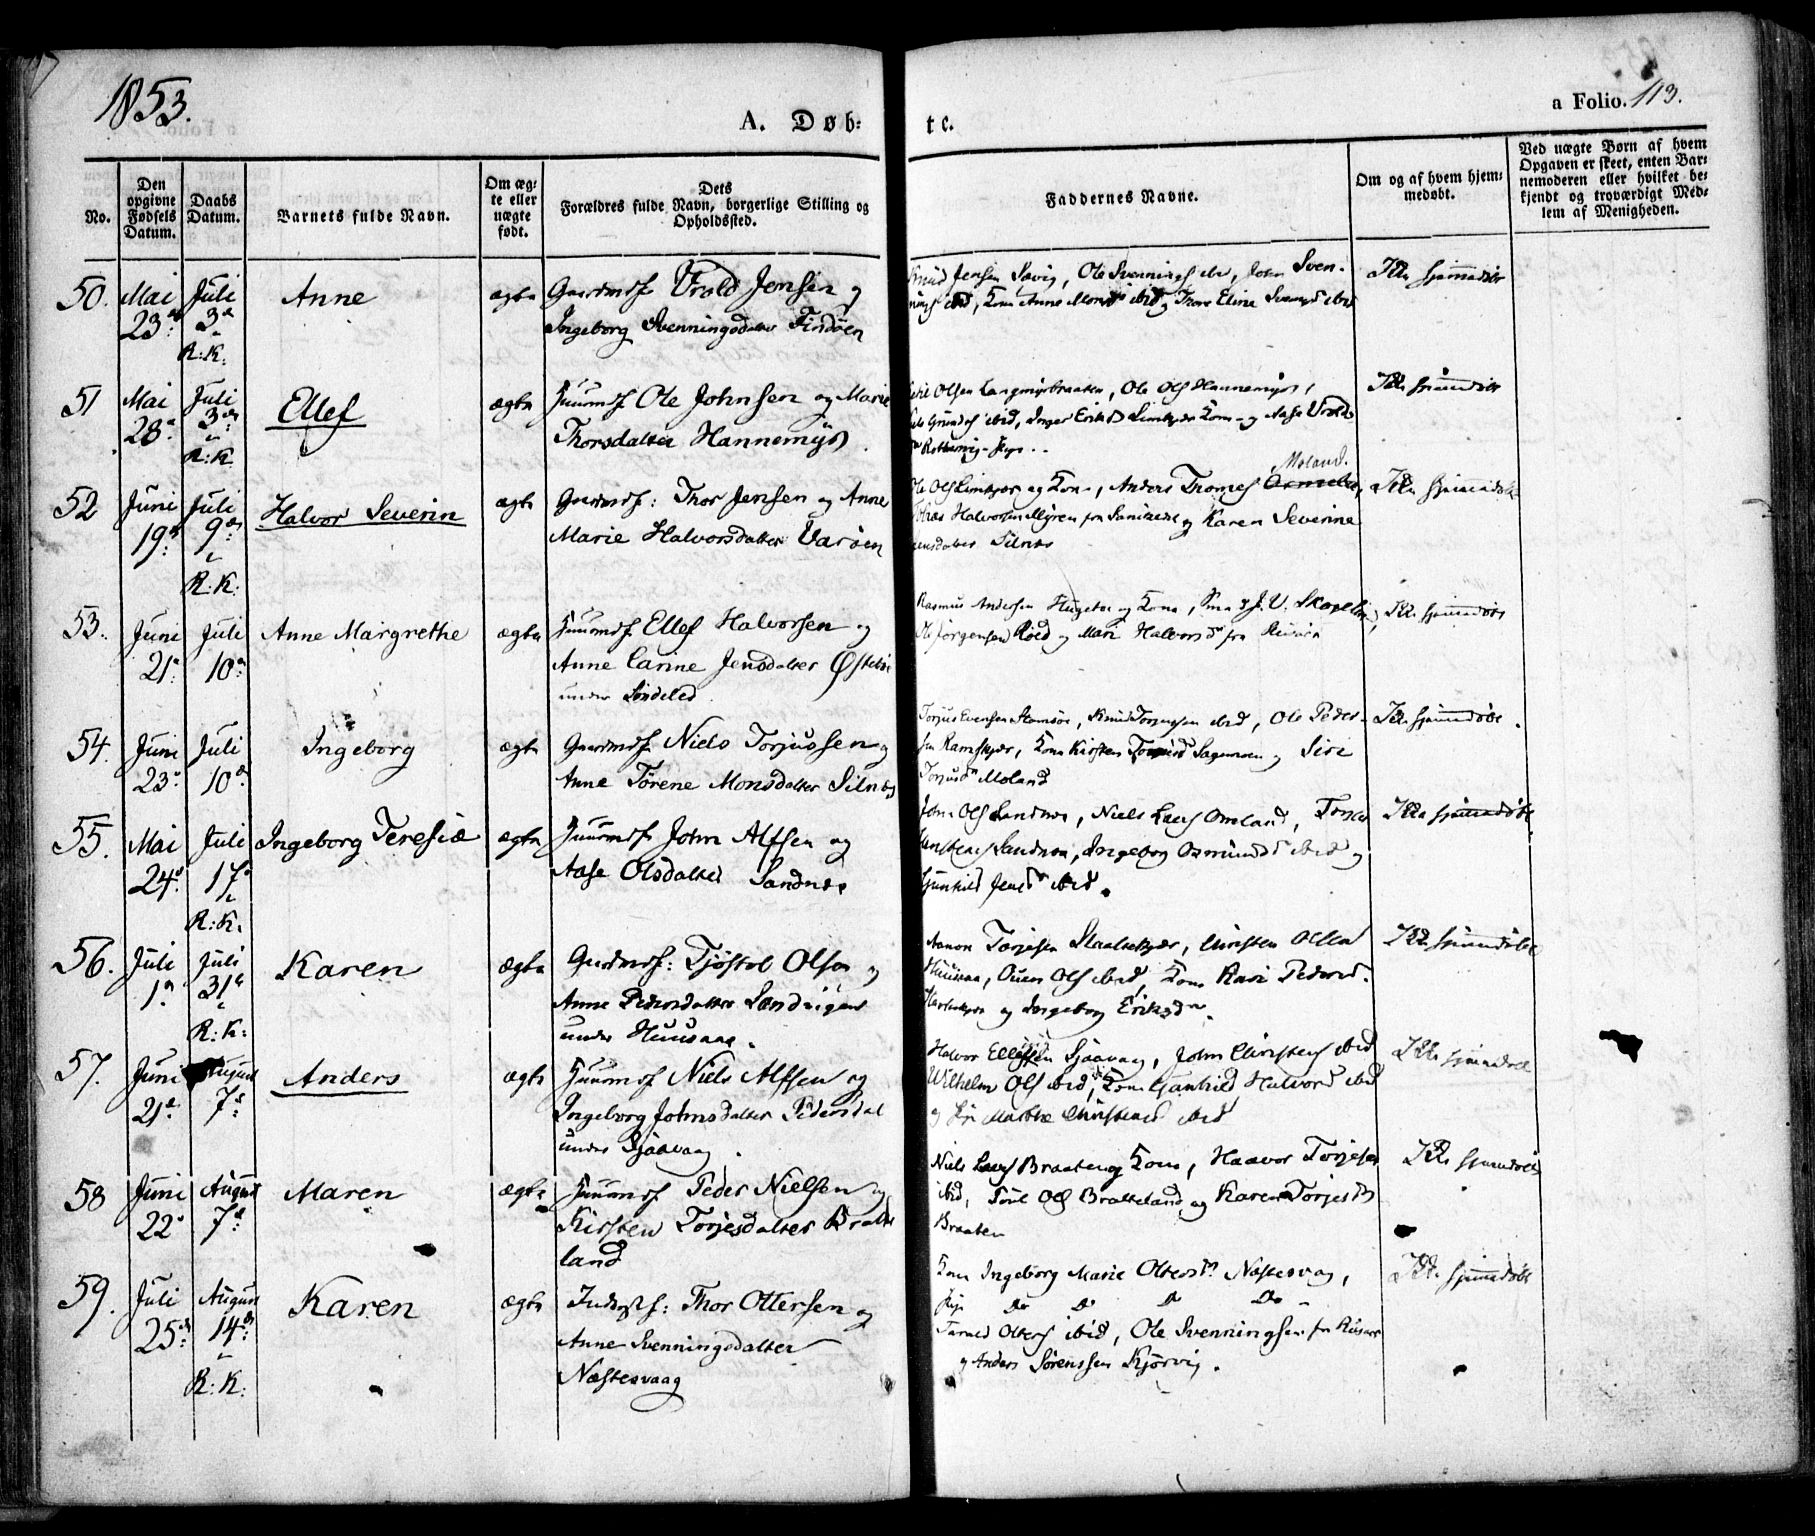 1853.
A. Døb-
te.
a Folio. 113.
No.
Den opgivne Fødsels Datum.
Daabs Datum.
Barnets fulde Navn.
Om ægte eller uægte født.
Dets
Forældres fulde Navn, borgerlige Stilling og
Opholdssted.
Faddernes Navne.
Om og af hvem hjem-
medøbt.
Ved uægte Børn af hvem
Opgaven er skeet, enten Bar-
nemoderen eller hvilket be-
kjendt og troværdigt Med-
lem af Menigheden.
50. Mai 23 Juli 3 R: K: Anne ægte Gaardmd. Vrold Jensen og
Ingeborg Svenningsdatter Findöen
Knud Jensen Sævig, Ole Svennings ibid, John Sven-
nings ibid, Kone Anne Monsd ibid og Thore Eline ibid
Ikke hjemmedöbt
51 Mai 28 Juli 3 R: K. Ellef ægte Huusmd. Ole Johnsen og Marie
Thorsdatter Hannemyr
Olsen Langmyrbraaten, Ole Ols Hannemyr,
ibid, Inger Eriksd Limkjær Kone og Aase Vrolds
Ikke hjemmedöbt
52 Juni 19 Juli 9 R: K: Halvor Severin ægte Gaardmd: Thor Jensen og Anne
Marie Halvorsdatter Varöen
Ole Ols Limkjær og Kone, Anders Tromes Moland,
Halvorsen Myren fra Sanikedal og Karen Severine
Jensdatter Silnes
Ikke hjemmedöbt
53. Juni 21 Juli 10 Anne Margrethe ægte Huusmd. Ellef Halvorsen og
Anne Carine Jensdatter Østebö
under Söndeled
Rasmus Andersen og Kone,
Ole Jörgensen Röed og Mari Halvorsd fra
Ikke hjemmedöbt
54. Juni 23 Juli 10 Ingeborg ægte Gaardmd. Niels Torjussen og
Anne Törene Monsdatter Silnes
Torjus Evensen, Knud Torjussen ibid, Ole Peder-
sen Ramskjær, Kone Kirsten og Siri
Torjusd Moland
Ikke hjemmedöbt.
55. Mai 24 Juli 17 R: K. Ingeborg Teresiæ ægte Huusmd. John Alfsen og
Aase Olsdatter Sandnes
John Ols Sandnes, Niels Lars Omland,
Sandnes, Ingeborg Osmundsd ibid og
Gunhild Jensd ibid.
Ikke hjemmedöbt
56. Juli 1 Juli 31 R: K: Karen ægte Gaardmd: Tjöstol Olsen og
Anne Pedersdatter Landvigen
under Huusaas.
Aanon Torjesen, Christen Olsen
Huusaas, Ouen Ols ibid, Kone Kari Pedersd
og Ingeborg Eriksd.
Ikke hjemmedöbt
57. Juni 21 August 7 Anders ægte Huusmd Niels Alfsen og
Ingeborg Johnsdatter Pedersdal
under Sjaavaag.
Halvor Ellefsen Sjaavaag, John Christens ibid
Wilhelm Ols ibid, Kone Gunhild Halvorsd ibid
og Marthe Christensd ibid
Ikke hjemmedöbt
58 Juni 22 August 7 Maren ægte Huusmd Peder Nielsen og
Kirsten Torjesdatter Bratte
land
Niels Lars Braaten og Kone, Haavor Torjesen
ibid, Ols Bratteland og Karen Torjesd
Braaten
Ikke hjemmedöbt
59. Juli 25 August 14 R: K: Karen ægte Inderst: Thor Ottersen og
Anne Svenningsdatter
Næstesvaag
Kone Ingeborg Marie Ottersd Næstesvaag,
Pige Do Do Do Do
Tarald Otters ibid, Ole Svenningsen fra Riisöer
og Anders Sörenssen Kjörvig.
Ikke hjemmedöbt